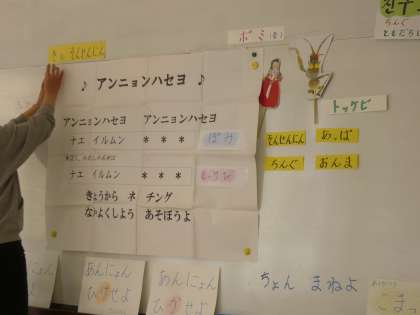 친구
らんぐ
ともだち
ポミ(春)
さい そんせんにん
♪ アンニョンハセヨ ♪
トッケビ
アンニョンハセヨ アンニョンハセヨ
ナエ イルムン * * * ぽみ
そんせんにん あっぱ
ナエ イルムン * * *
らんぐ おんま
きょうから ネ チング
なかよくしよう あそぼうよ
ちょん まねよ
あんにょん
ひがせよ
あんにょん
ひがせよ
こま